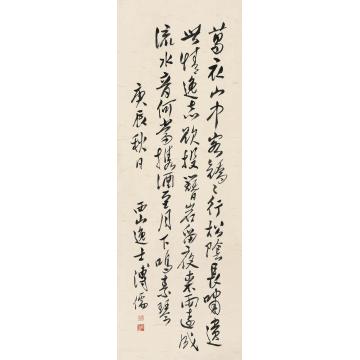 葛衣山中客行松陰長嘯遺
世情逸志欲投簪岩留夜來雨遠成
流水音何當攜酒至月下鳴素琴
庚辰秋日 西山逸士溥儒